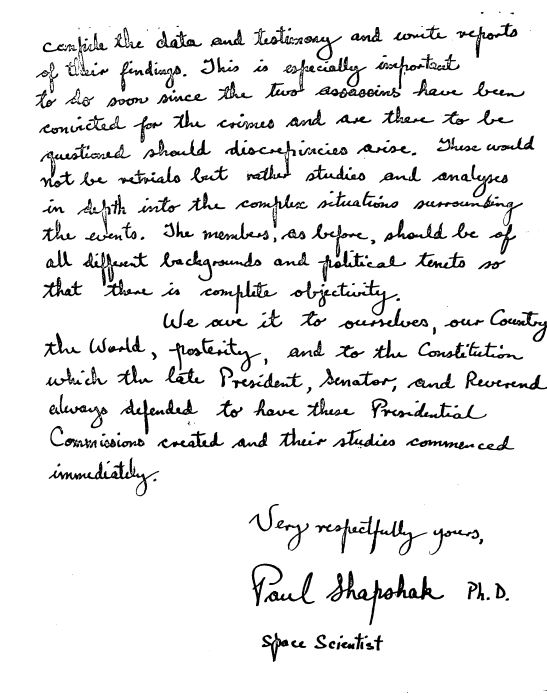 compile the data and testimony and write reports
of their findings. This is especially important
to do soon since the two assassins have been
convicted for the crimes and are there to be
questioned should discrepincies arise. These would
not be retrials but rather studies and analyses
in depth into the complex situations surrounding
the events. The members, as before, should be of
all different backgrounds and political tenets so
that there is complete objectivity.
We owe it to ourselves, our Country
the World, posterity, and to the Constitution
which the late President, Senator, and Reverend
always defended to have these Presidential
Commissions created and their studies commenced
immediately.
Very respectfully yours,
Paul Shapshak Ph.D.
Space Scientist